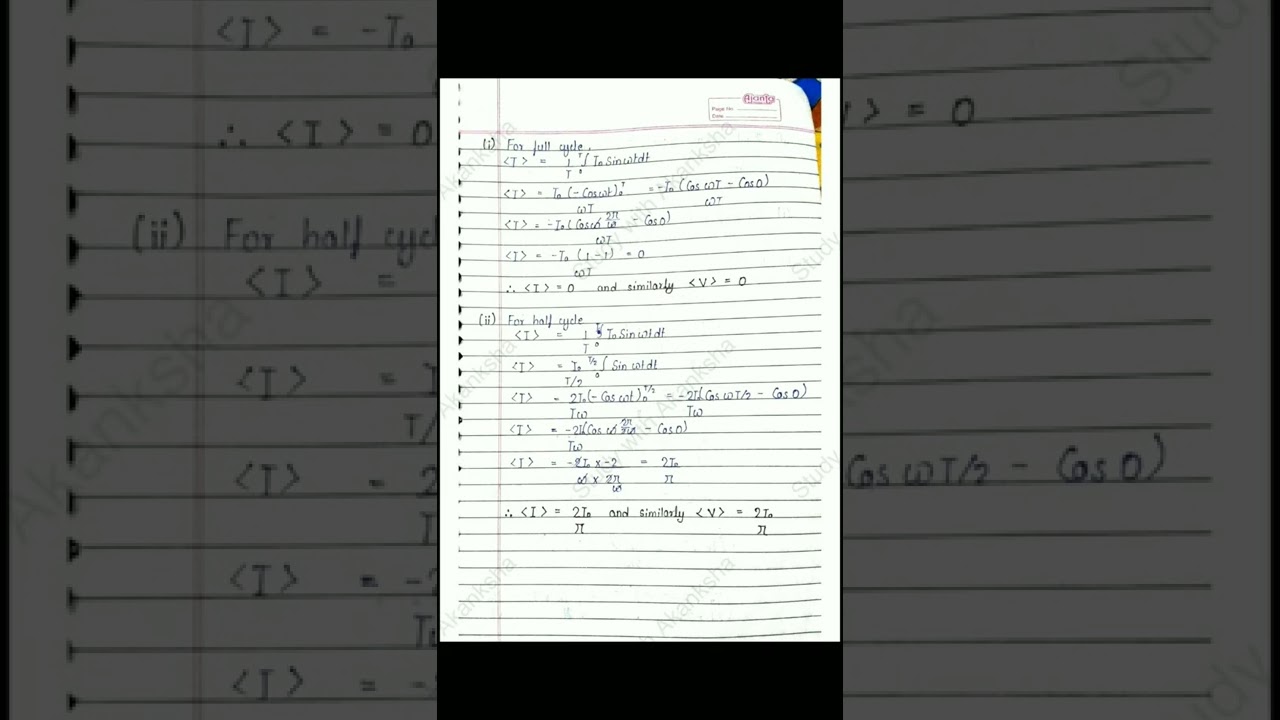 Ajanta
Page No.
Date
(i) For full cycle,
⟨I⟩ = 1/T ₀∫ᵀ I₀ Sin ωt dt
⟨I⟩ = I₀ (-Cos ωt)₀ᵀ / ωT = -I₀ (Cos ωT - Cos 0) / ωT
⟨I⟩ = -I₀ (Cos ω 2π/ω - Cos 0) / ωT
⟨I⟩ = -I₀ (1-1) / ωT = 0
∴ ⟨I⟩ = 0 and similarly ⟨V⟩ = 0
(ii) For half cycle
⟨I⟩ = 1/T ₀∫ I₀ Sin ωt dt
⟨I⟩ = I₀ / T/2 ₀∫^T/2 Sin ωt dt
⟨I⟩ = 2I₀ (-Cos ωt)₀^T/2 / Tω = -2I₀ (Cos ωT/2 - Cos 0) / Tω
⟨I⟩ = -2I₀ (Cos ω 2π/2ω - Cos 0) / Tω
⟨I⟩ = -2I₀ × -2 / ω × 2π/ω = 2I₀/π
∴ ⟨I⟩ = 2I₀/π and similarly ⟨V⟩ = 2I₀/π
Study with Akanksha